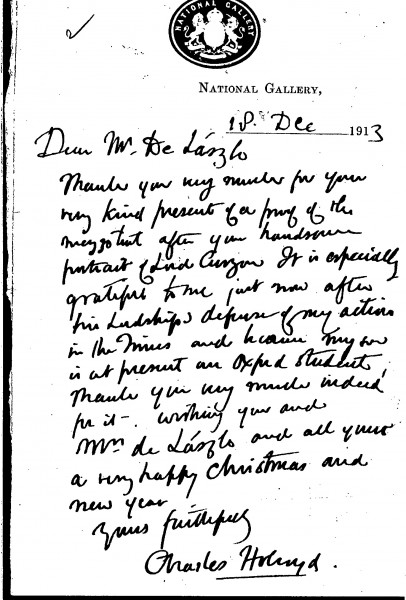 NATIONAL GALLERY
NATIONAL GALLERY,
18. Dec 1913
Dear Mr. De László
Thank you very much for your
very kind present of a proof of the
mezzotint after your handsome
portrait of Lord Curzon. It is especially
grateful to me just now after
his Lordship's defense of my action
in the Times and because my son
is at present an Oxford student,
Thank you very much indeed
for it – wishing you and
Mrs de László and all yours
a very happy Christmas and
new year
Yours faithfully
Charles Holroyd.